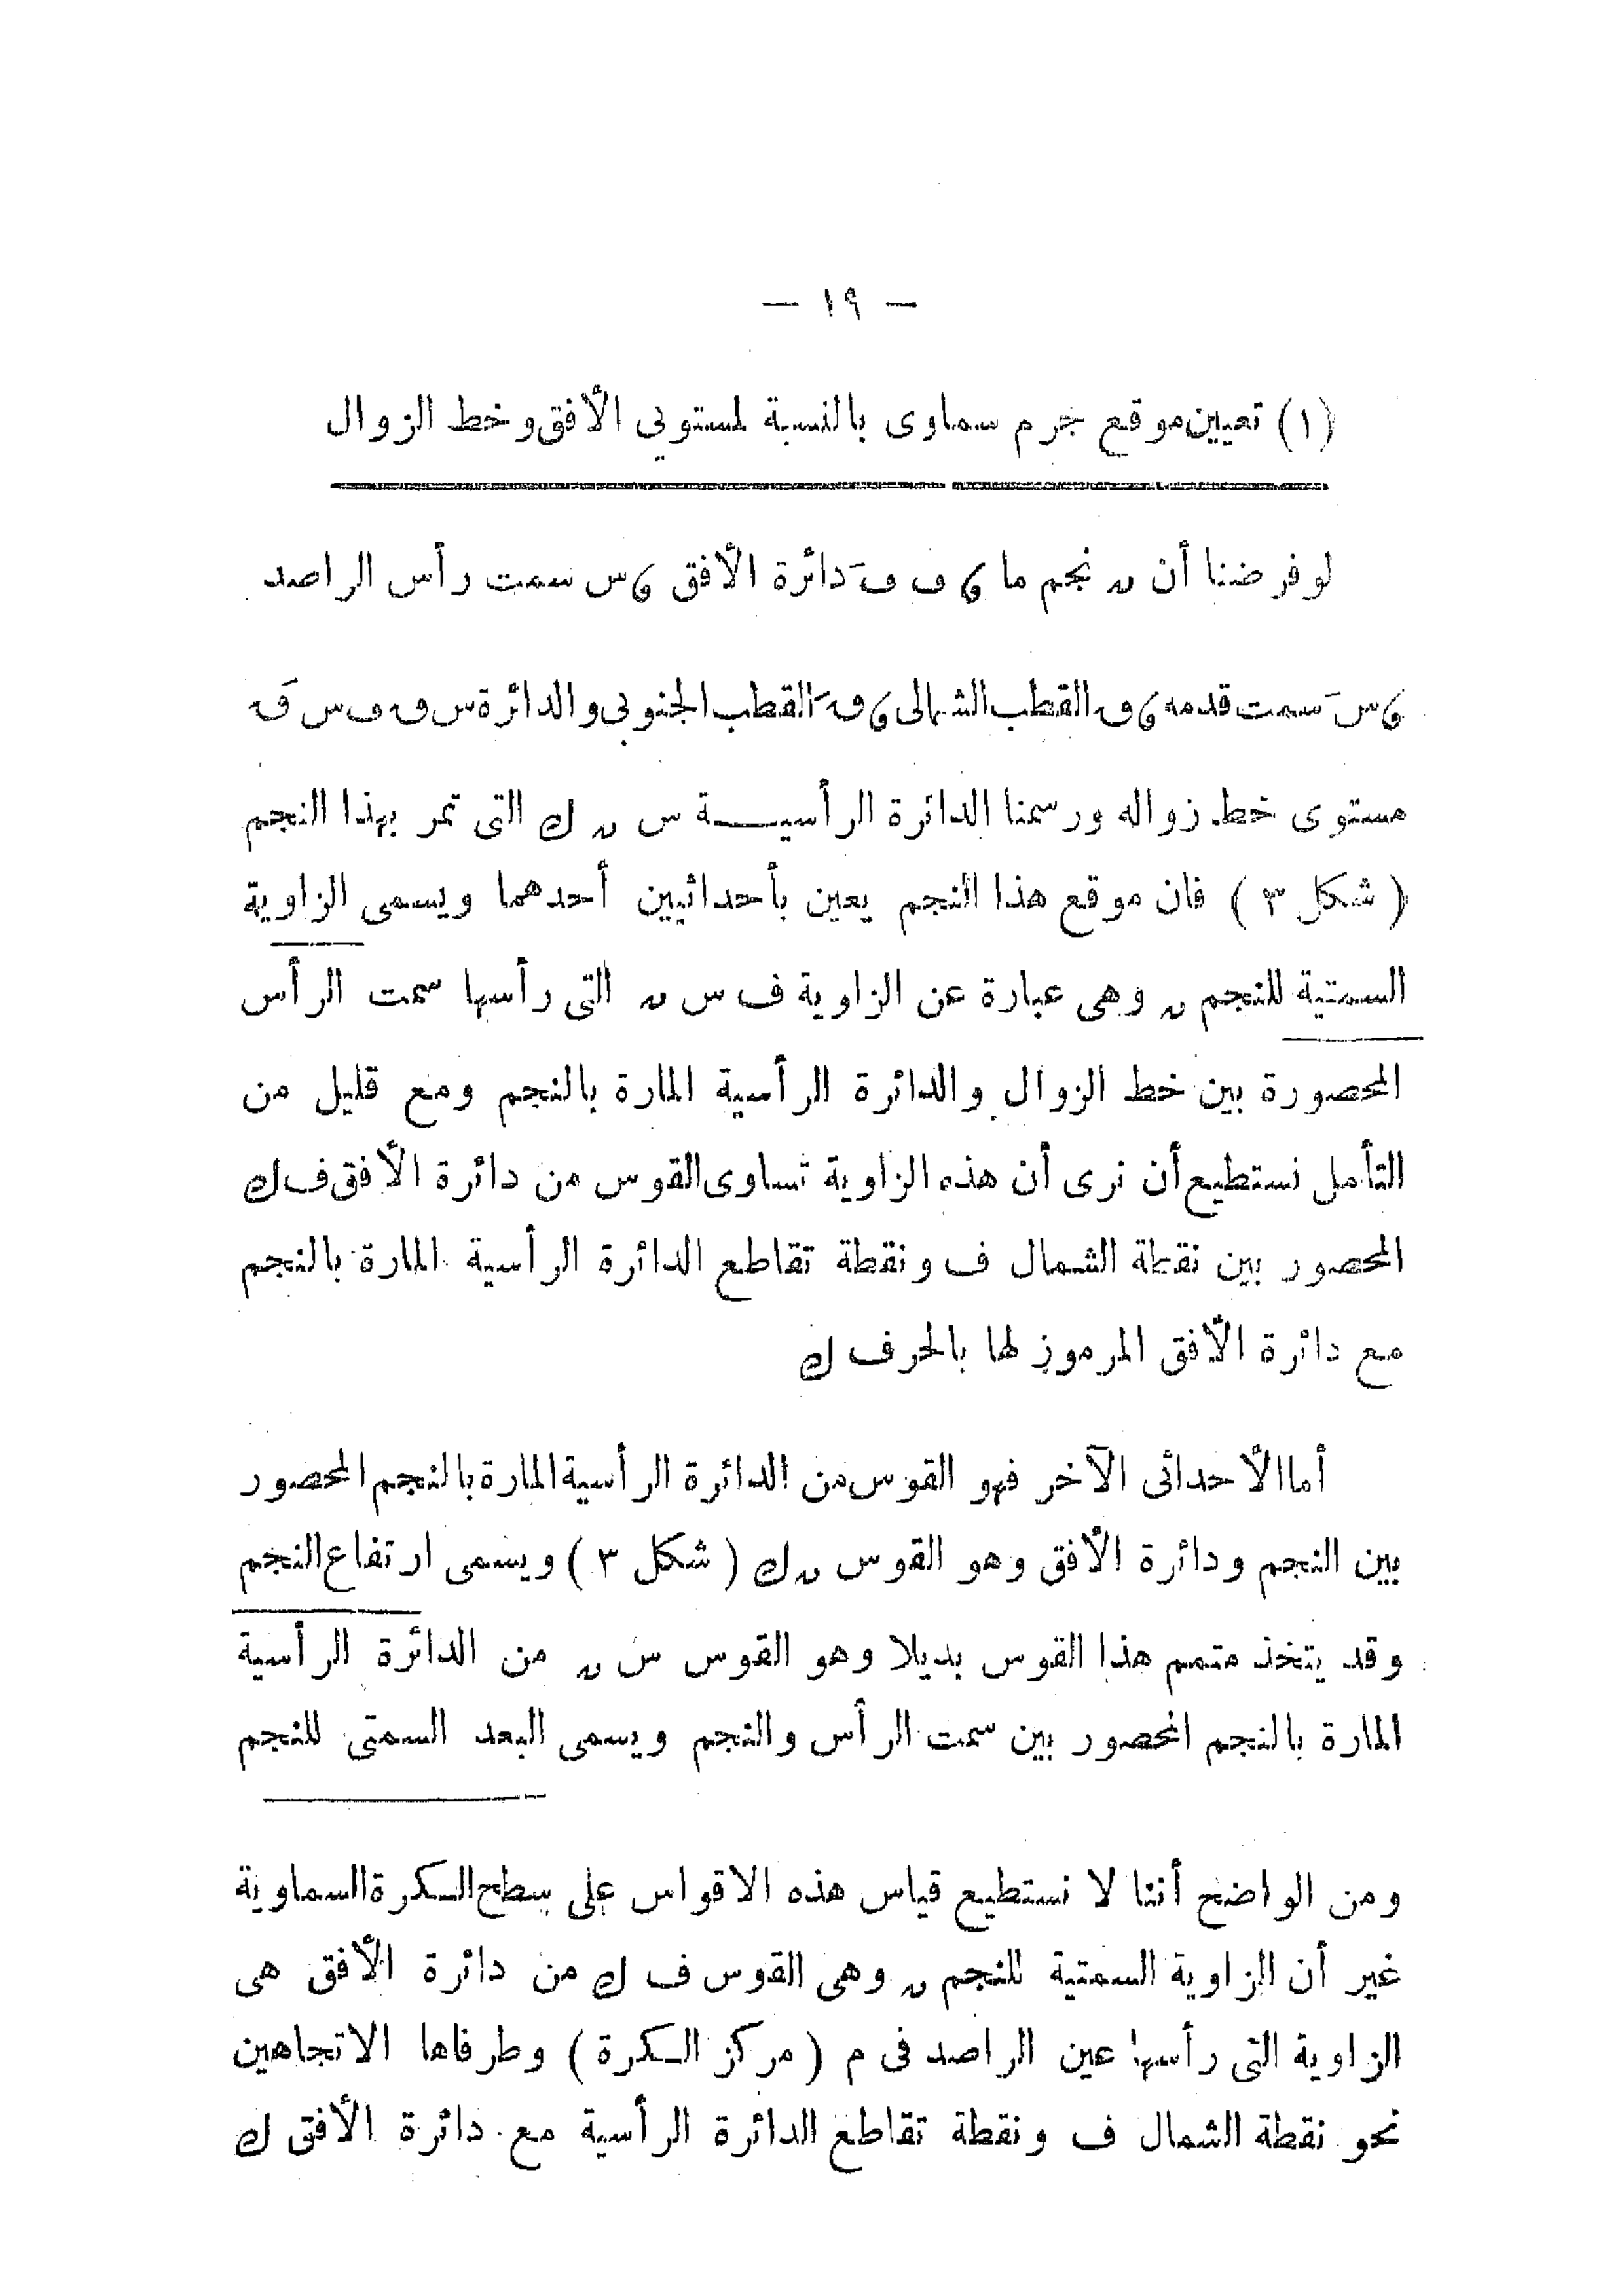 — ١٩ —
(١) تعيين موقع جرم سماوى بالنسبة لمستويى الأفق وخط الزوال
لو فرضنا أن ن نجم ما ، ف فَ دائرة الأفق ، س سمت رأس الراصد
، سَ سمت قدمه ، ق القطب الشمالى ، قَ القطب الجنوبى والدائرة س ق ف س قَ
مستوى خط زواله ورسمنا الدائرة الرأسيــة س ن ك التى تمر بهذا النجم
( شكل ٣ ) فان موقع هذا النجم يعين بأحداثيين أحدهما ويسمى الزاوية
السمتية للنجم ن وهى عبارة عن الزاوية ف س ن التى رأسها سمت الرأس
المحصورة بين خط الزوال والدائرة الرأسية المارة بالنجم ومع قليل من
التأمل نستطيع أن نرى أن هذه الزاوية تساوى القوس من دائرة الأفق ف ك
المحصور بين نقطة الشمال ف ونقطة تقاطع الدائرة الرأسية المارة بالنجم
مع دائرة الأفق المرموز لها بالحرف ك
أما الأحداثى الآخر فهو القوس من الدائرة الرأسية المارة بالنجم المحصور
بين النجم ودائرة الأفق وهو القوس ن ك ( شكل ٣ ) ويسمى ارتفاع النجم
وقد يتخذ متمم هذا القوس بديلا وهو القوس س ن من الدائرة الرأسية
المارة بالنجم المحصور بين سمت الرأس والنجم ويسمى البعد السمتى للنجم
ومن الواضح أننا لا نستطيع قياس هذه الاقواس على سطح الكرة السماوية
غير أن الزاوية السمتية للنجم ن وهى القوس ف ك من دائرة الأفق هى
الزاوية التى رأسها عين الراصد فى م ( مركز الكرة ) وطرفاها الاتجاهين
نحو نقطة الشمال ف ونقطة تقاطع الدائرة الرأسية مع دائرة الأفق ك